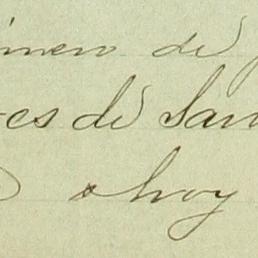 imero de
es de San
hoy